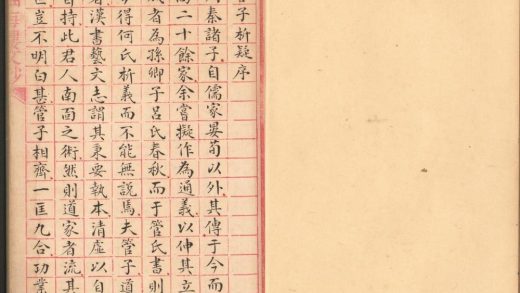 管子析疑序
周秦諸子自儒家晏荀以外其傳于今而
尚二十餘家余嘗擬作為通義以伸其立
成者為孫卿子呂氏春秋而于管氏書則
今得何氏析義而不能無說焉夫管子道
者漢書藝文志謂其秉要執本清虛以自
自持此君人南面之術然則道家者流其
世豈不明白甚管子相齊一匡九合功業